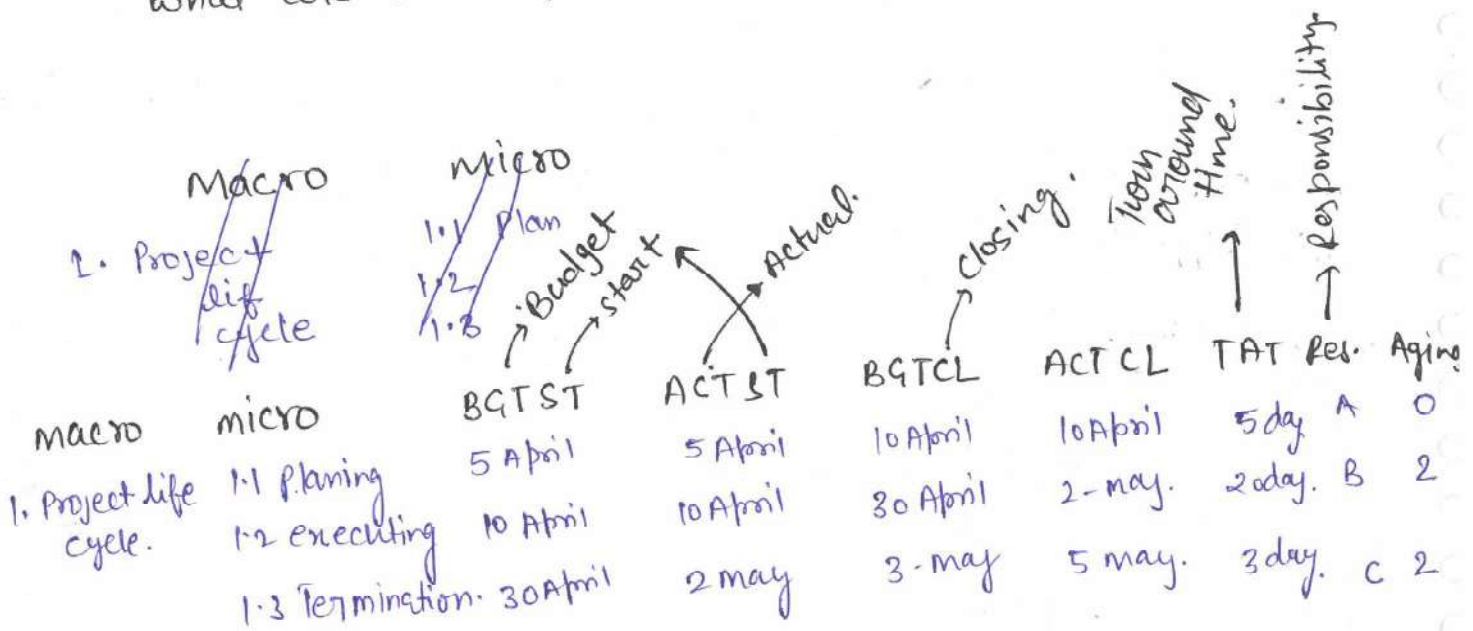 Macro Micro
1. Project 1.1 Plan
lif 1.2
cycle 1.3
Budget
start
Actual.
Closing.
Turn
around
time.
Responsibility.
macro micro BGT ST ACT ST BGTCL ACT CL TAT Res. Aging
1. Project life 1.1 Planing 5 April 5 April 10 April 10 April 5 day A 0
cycle. 1.2 executing 10 April 10 April 30 April 2-may. 20day. B 2
1.3 Termination. 30 April 2 may 3-may 5 may. 3 day. C 2